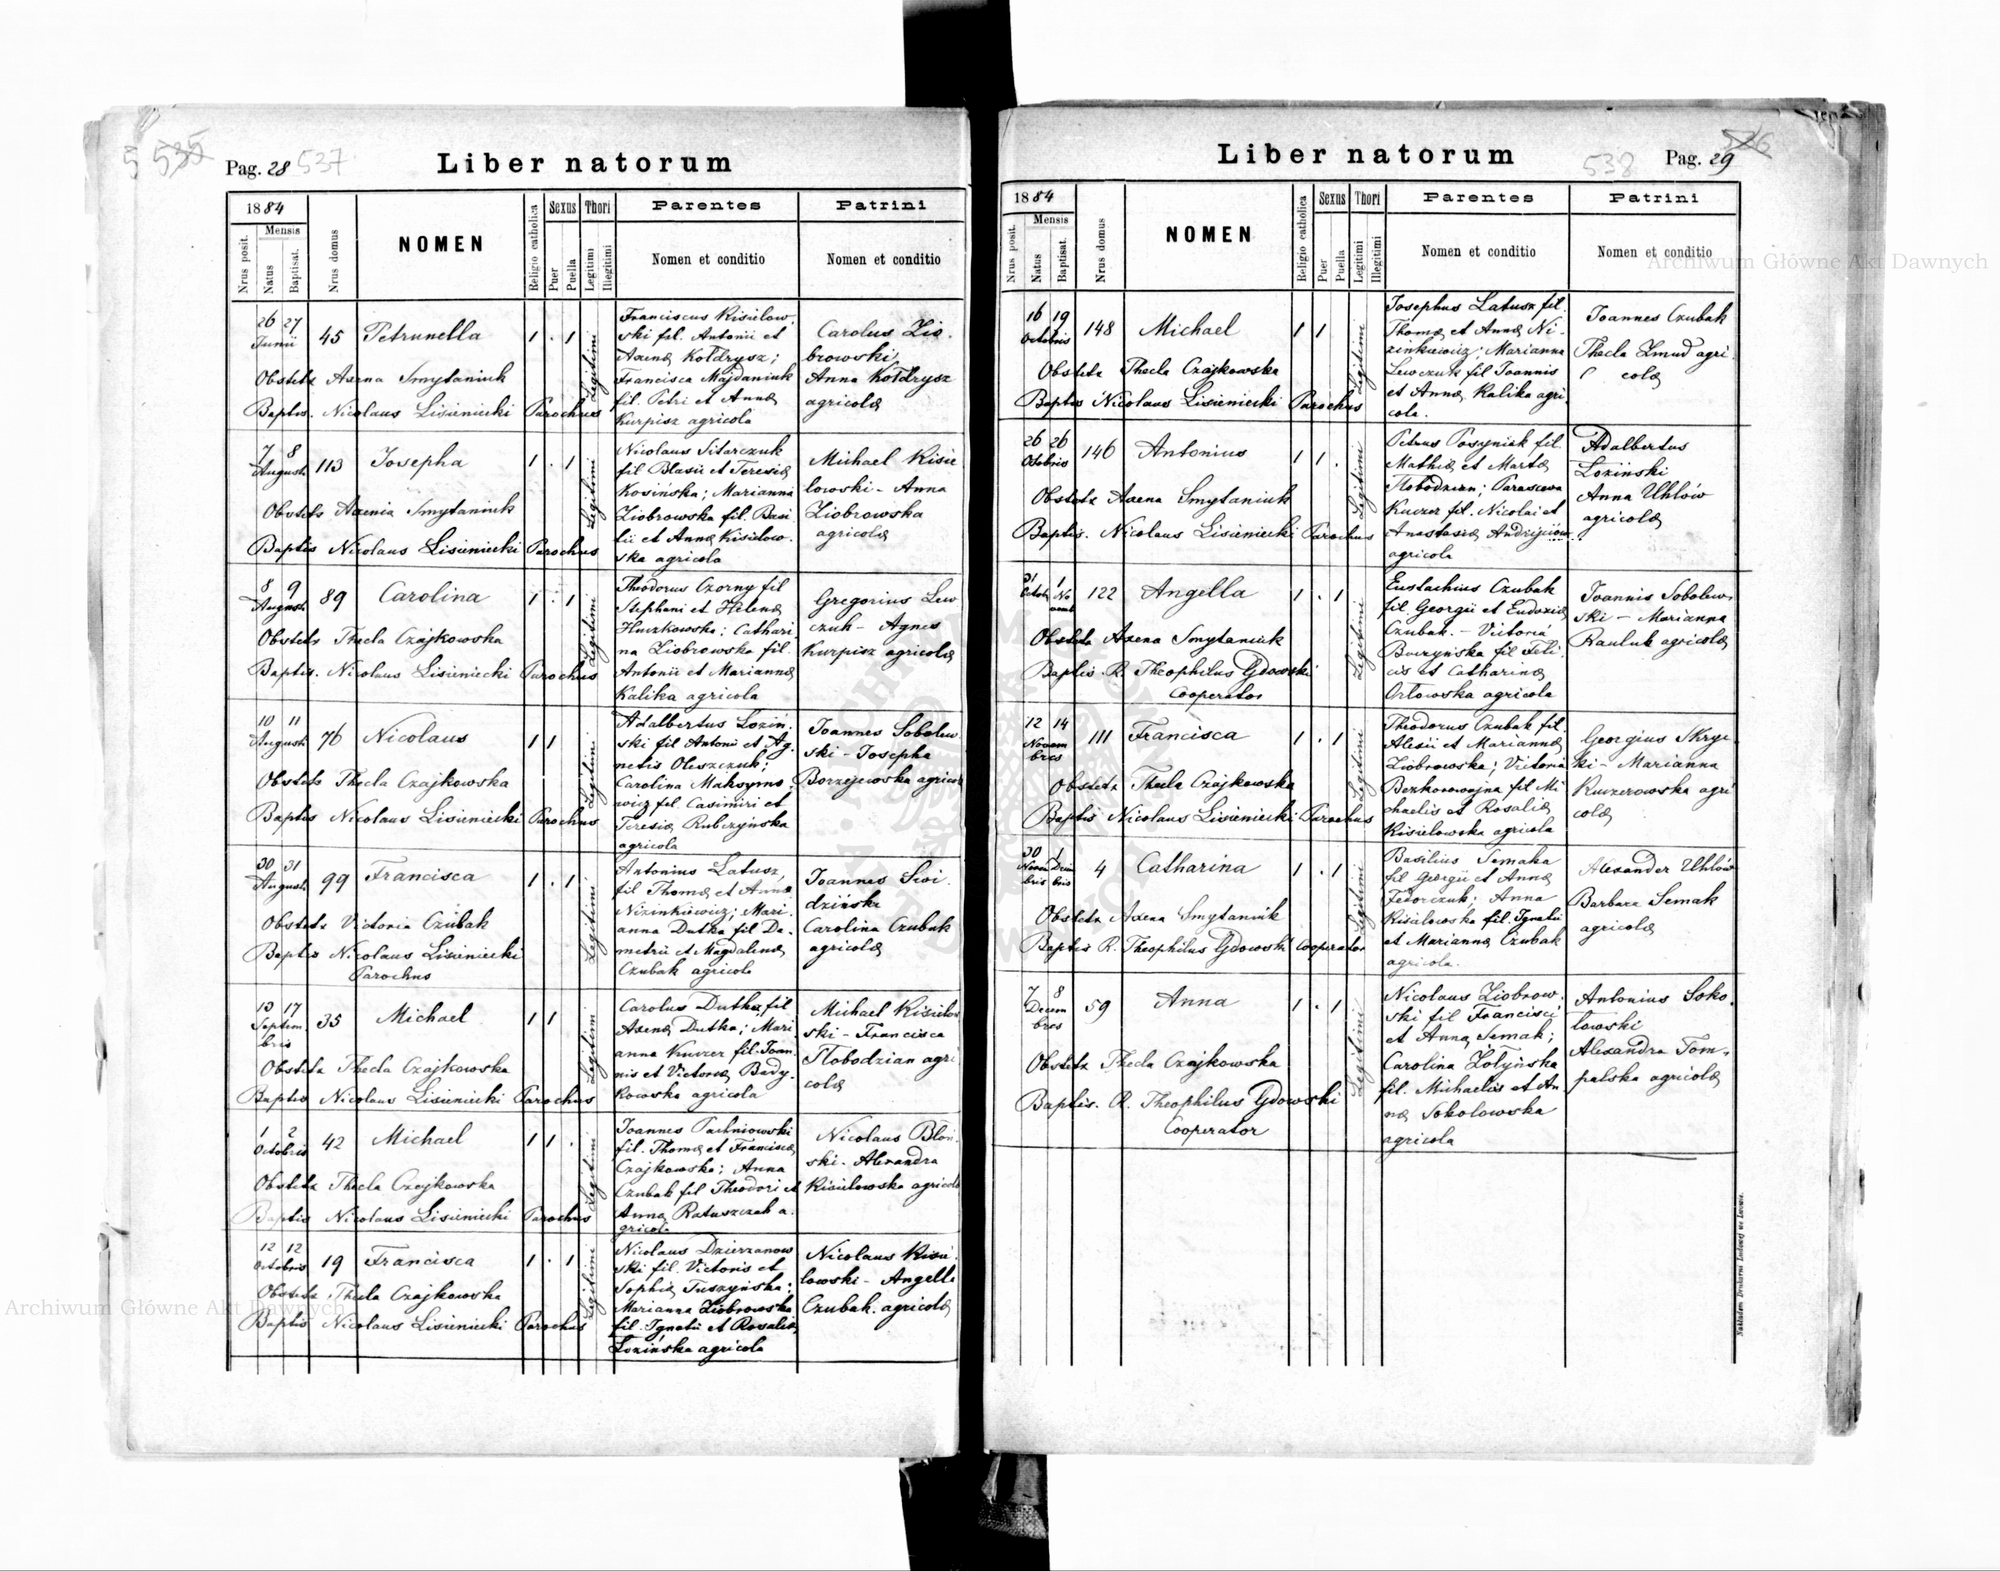 535
Pag. 28 537
Liber natorum
1884
Nrus posit.
Mensis
Natus
Baptisat.
Nrus domus
NOMEN
Religio catholica
Sexus
Puer
Puella
Thori
Legitimi
Illegitimi
Parentes
Nomen et conditio
Patrini
Nomen et conditio
26 27
Junii
45 Petrunella 1 . 1 Legitimi
Obstetx Axena Smytaniuk
Baptis. Nicolaus Lisieniecki Parochus
Franciscus Kisielow.
ski fil. Antonii et
Axenæ Kołdrysz;
Francisca Majdaniuk
fil. Petri et Annæ
Kurpisz agricola
Carolus Zio.
browski
Anna Kołdrysz
agricolæ
7 8
Augusti
113 Josepha 1 . 1 Legitimi
Obstetx Axenia Smytaniuk
Baptis Nicolaus Lisieniecki Parochus
Nicolaus Sitarczuk
fil Blasii et Teresiæ
Kosińska; Marianna
Ziobrowska fil. Basi
lii et Annæ Kisielow.
ska agricola
Michael Kisie
lowski - Anna
Ziobrowska
agricolæ
8 9
Augusti
89 Carolina 1 . 1 Legitimi
Obstetx Thecla Czajkowska
Baptis. Nicolaus Lisieniecki Parochus
Theodorus Czorny fil
Stephani et Helenæ
Huczkowska; Cathari.
na Ziobrowska fil.
Antonii et Mariannæ
Kalika agricola
Gregorius Lew
czuk - Agnes
Kurpisz agricolæ
10 11
Augusti
76 Nicolaus 1 1 Legitimi
Obstetx Thecla Czajkowska
Baptis Nicolaus Lisieniecki Parochus
Adalbertus Loziń.
ski fil Antonii et Ag.
netis Oleszczuk;
Carolina Maksymo.
wicz fil. Casimiri et
Teresiæ Rubczyńska
agricola
Joannes Sobolew
ski - Josepha
Borzejewska agricolæ
30 31
Augusti
99 Francisca 1 . 1 Legitimi
Obstetx Victoria Czubak
Baptis Nicolaus Lisieniecki
Parochus
Antonius Latusz,
fil Thomæ et Annæ
Nizinkiewicz; Mari.
anna Dutka fil De.
metrii et Magdalenæ
Czubak agricola
Joannes Swi.
dziński
Carolina Czubak
agricolæ
17
Septem
bris
35 Michael 1 1 Legitimi
Obstetx Thecla Czajkowska
Baptis Nicolaus Lisieniecki Parochus
Carolus Dutka, fil
Axenæ Dutka; Mari
anna Kuczer fil. Joan.
nis et Victoriæ Bady.
kowska agricola
Michael Kisielow
ski - Francisca
Słobodzian agri
colæ
1 2
Octobris
42 Michael 1 1 . Legitimi
Obstetx Thecla Czajkowska
Baptis Nicolaus Lisieniecki Parochus
Joannes Pachniowski
fil. Thomæ et Franciscæ
Czajkowska; Anna
Czubak fil Theodori et
Annæ Ratuszczak a.
gricola
Nicolaus Błoń.
ski. Alexandra
Kisielowska agricolæ
12 12
Octobris
19 Francisca 1 . 1 Legitimi
Obstetx Thecla Czajkowska
Baptis Nicolaus Lisieniecki Parochus
Nicolaus Dzierzanow
ski fil. Victoris et
Sophiæ Tuszyńska;
Marianna Ziobrowska
fil. Ignatii et Rosaliæ
Lozińska agricola
Nicolaus Kisie.
lowski - Angella
Czubak. agricolæ
Liber natorum
538 Pag. 29
1884
Nrus posit.
Mensis
Natus
Baptisat.
Nrus domus
NOMEN
Religio catholica
Sexus
Puer
Puella
Thori
Legitimi
Illegitimi
Parentes
Nomen et conditio
Patrini
Nomen et conditio
16 19
Octobris
148 Michael 1 1 Legitimi
Obstetx Thecla Czajkowska
Baptis Nicolaus Lisieniecki Parochus
Josephus Latusz fil.
Thomæ et Annæ Ni-
zinkiewicz; Marianna
Lewczuk fil Joannis
et Annæ Kalika agri
cola.
Joannes Czubak
Thecla Zmud agri.
colæ
26 26
Octobris
146 Antonius 1 1 . Legitimi
Obstetx Axena Smytaniuk
Baptis. Nicolaus Lisieniecki Parochus
Petrus Posyniak fil.
Mathiæ et Martæ
Słobodzian; Parascewa
Kuczer fil. Nicolai et
Anastasiæ
agricola
Adalbertus
Loziński
Anna Uhlów
agricolæ
31 1
Octob No
vemb
122 Angella 1 . 1 Legitimi
Obstetx Axena Smytaniuk
Baptis. R. Theophilus Gdowski
Cooperator
Eustachius Czubak
fil. Georgii et Eudoxiæ
Czubak. - Victoria
Buczyńska fil Feli.
cis et Catharinæ
Orłowska agricola
Joannis Sobolew.
ski - Marianna
Rauluk agricolæ
12 14
Novem
bris
111 Francisca 1 . 1 Legitimi
Obstetx Thecla Czajkowska
Baptis Nicolaus Lisieniecki Parochus
Theodorus Czubak fil.
Alexii et Mariannæ
Ziobrowska; Victoria
Bezkorowajna fil Mi
chaelis et Rosaliæ
Kisielowska agricola
Georgius Skryc
ki - Marianna
Kuczerowska agri
colæ
30 1
Novem Decem
bris bris
4 Catharina 1 . 1 Legitimi
Obstetx Axena Smytaniuk
Baptis R. Theophilus Gdowski Cooperator
Basilius Semaka
fil Georgii et Annæ
Fedorczuk; Anna
Kisielowska fil. Ignatii
et Mariannæ Czubak
agricola.
Alexander Uhlów
Barbara Semak
agricolæ
7 8
Decem
bris
59 Anna 1 . 1 Legitimi
Obstetx Thecla Czajkowska
Baptis. R. Theophilus Gdowski
Cooperator
Nicolaus Ziobrow.
ski fil Francisci
et Annæ Semak;
Carolina Żołyńska
fil. Michaelis et An.
næ Sokolowska
agricola
Antonius Soko.
łowski
Alexandra Tom.
palska agricolæ
Nakładem Drukarni Ludowej we Lwowie.
Archiwum Główne Akt Dawnych
Archiwum Główne Akt Dawnych